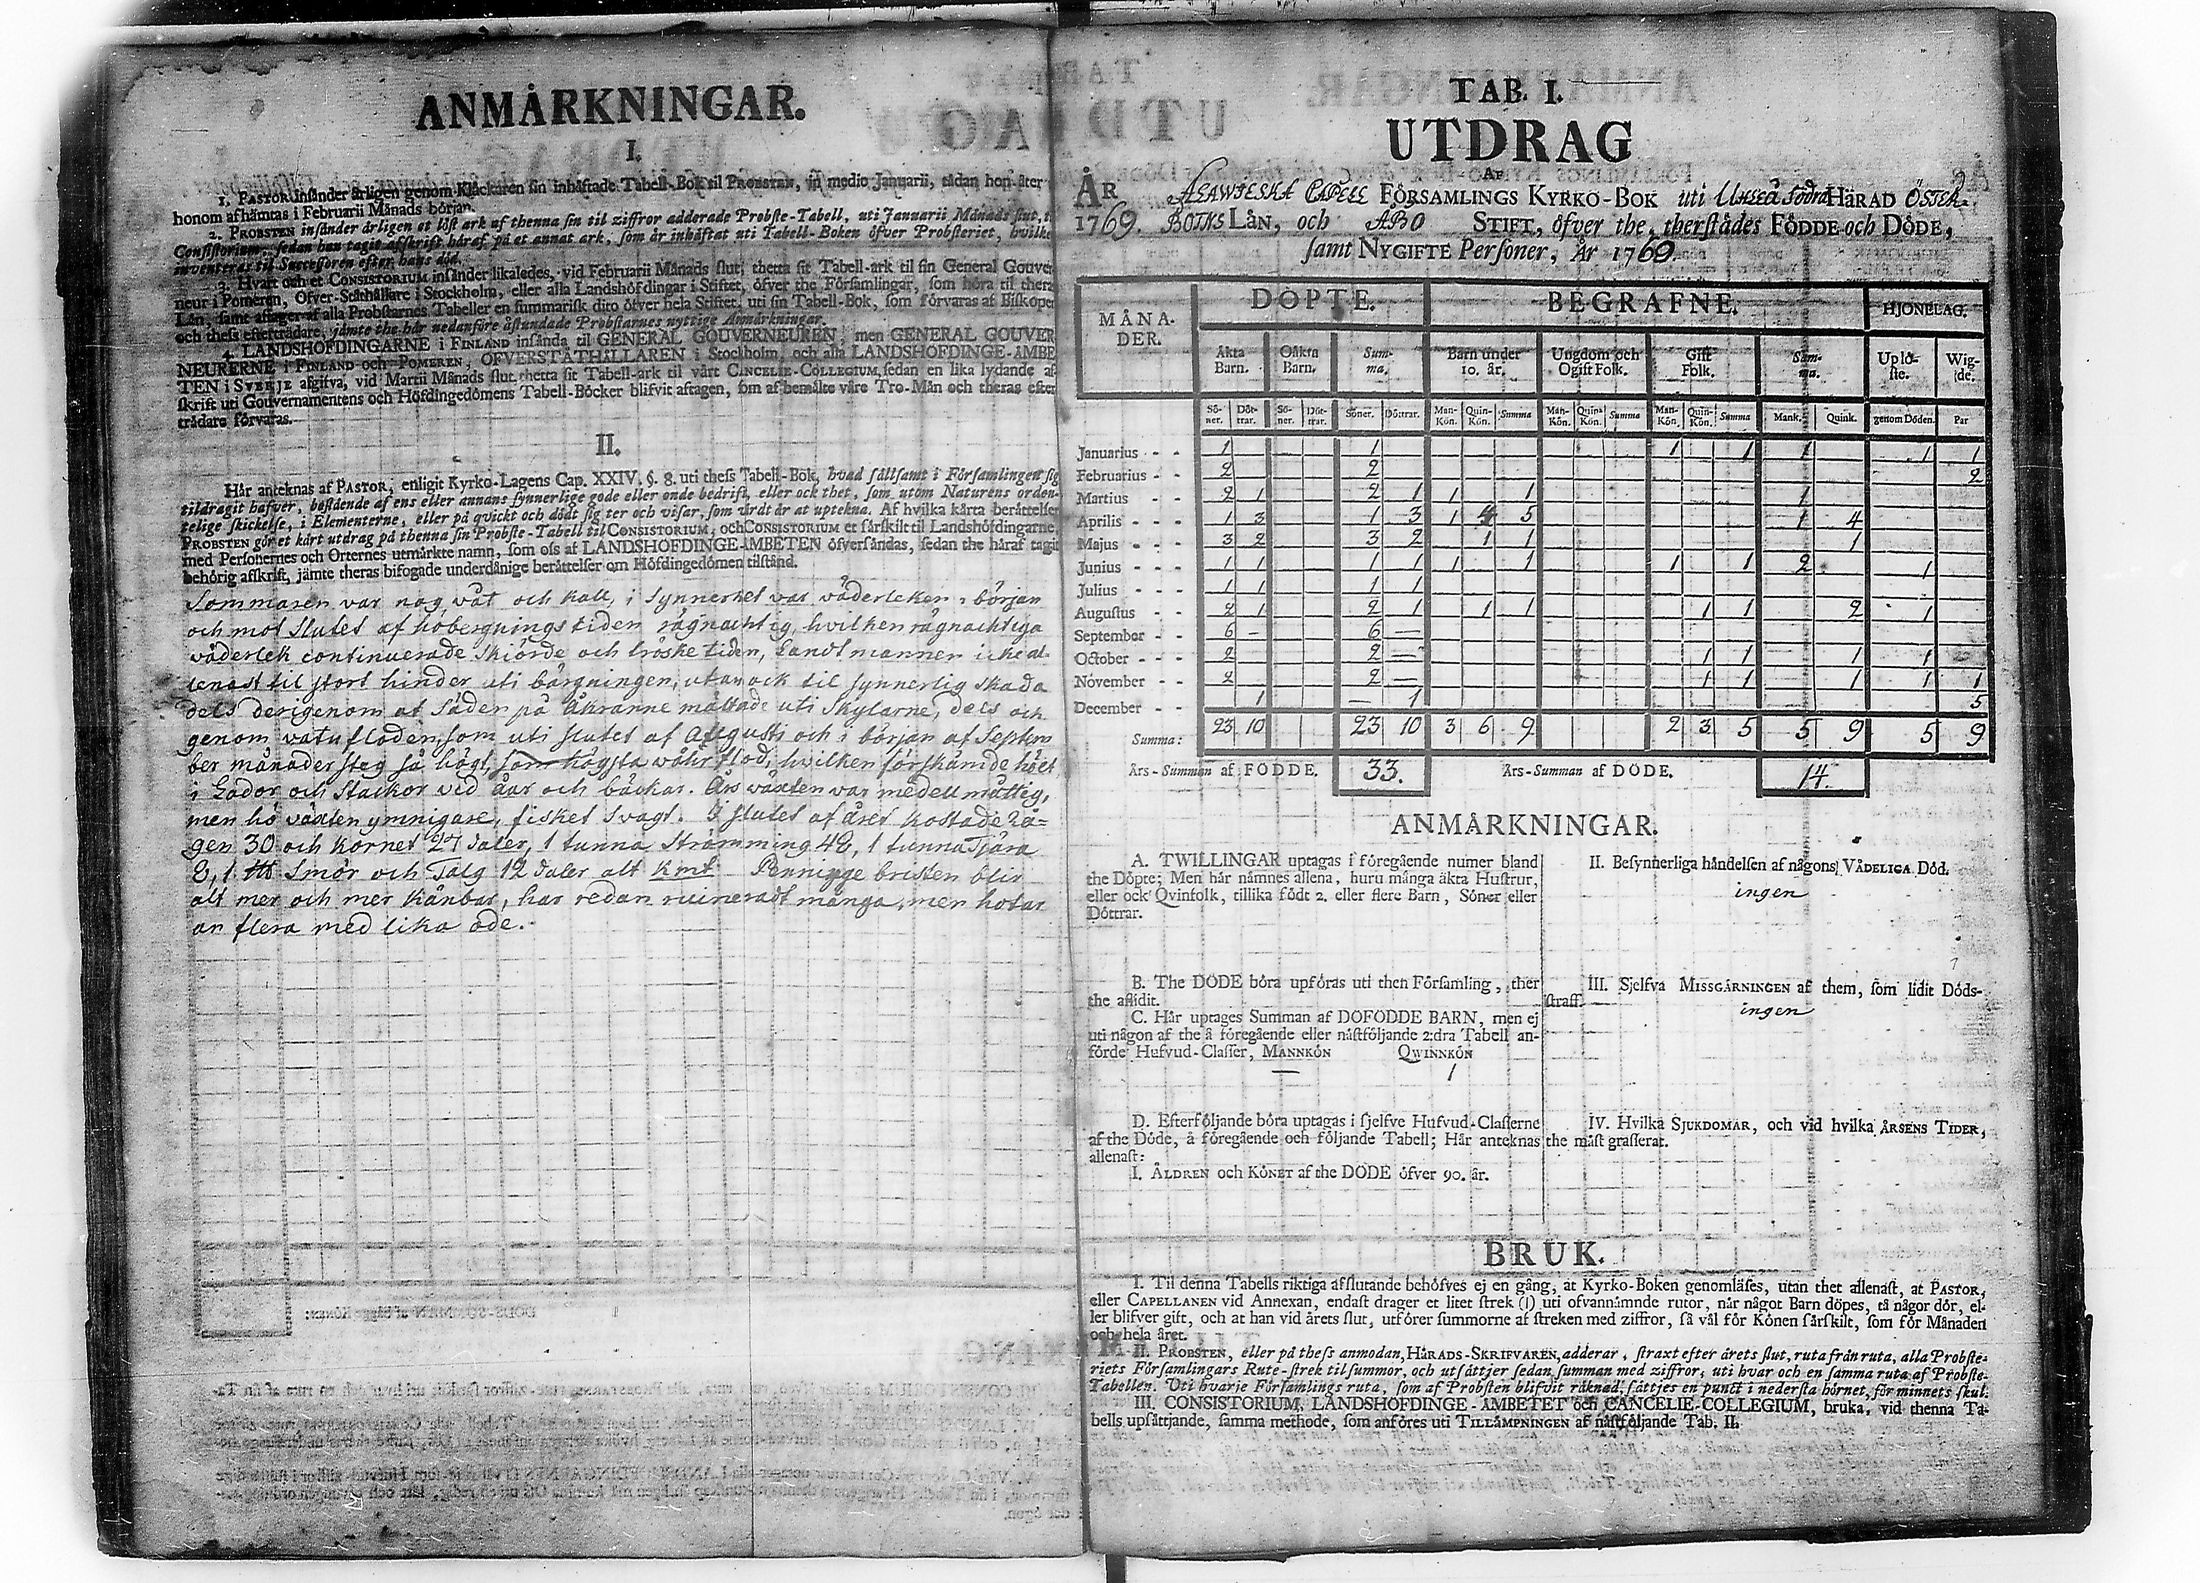 ANMÅRKNINGAR.
I.
1. PASTOR insånder årligen genom Klåckaren sin inbåftade Tabell-Bok til PROBSTEN, in medio Januarii, sådan hon åter
honom afhåmtas i Februarii Månads början.
2. PROBSTEN insånder årligen et löst ark af thenna sin til ziffror adderade Probste-Tabell, uti Januarii Månads slut, t
Consistorium: sedan han tagit afskrift håraf på et annat ark, som år inbåftat uti Tabell-Boken öfver Probsteriet, hvilke
inventeras til Successoren efter hans död.
3. Hvart och et CONSISTORIUM insånder likaledes, vid Februarii Månads slut, thetta sit Tabell-ark til sin General Gouver
neur i Pomeren, Öfver-Ståthållare i Stockholm, eller alla Landshöfdingar i Stiftet, öfver the Församlingar, som höra til thera
Lån, samt aftager af alla Probstarnes Tabeller en summarisk dito öfver hela Stiftet, uti sin Tabell-Bok, som förvaras af Biskopen
och thess efterträdare, jåmte the hår nedanföre åstundade Probstarnes nyttige Anmårkningar.
4. LANDSHÖFDINGARNE i FINLAND insånda til GENERAL GOUVERNEUREN, men GENERAL GOUVER
NEURERNE i FINLAND och POMEREN, ÖFVERSTÅTHÅLLAREN i Stockholm, och alla LANDSHÖFDINGE-ÅMBE
TEN i SVERJE afgifva, vid Martii Månads slut, thetta sit Tabell-ark til vårt CANCELIE-COLLEGIUM, sedan en lika lydande af-
skrift uti Gouvernamentens och Höfdingedömens Tabell-Böcker blifvit aftagen, som af bemålte våre Tro-Mån och theras efter
trådare förvaras.
II.
Hår anteknas af PASTOR, enligit Kyrko-Lagens Cap. XXIV. §. 8. uti thess Tabell-Bok, hvad sållsamt i Församlingen sig
tildragit hafver, bestående af ens eller annans synnerlige gode eller onde bedrift, eller ock thet, som utom Naturens orden-
telige skickelse, i Elementerne, eller på qvickt och dödt sig ter och visar, som vårdt år at uptekna. Af hvilka kårta beråttelser
PROBSTEN gör et kårt utdrag på thenna sin Probste-Tabell til CONSISTORIUM, och CONSISTORIUM et sårskilt til Landshöfdingarne,
med Personernes och Orternes utmårkte namn, som oss af LANDSHÖFDINGE-ÅMBETEN öfversåndas, sedan the håraf tagit
behörig afskrift, jåmte theras bifogade underdånige beråttelser om Höfdingedömen tilstånd.
Sommaren var nog våt och kall, i synnerhet var våderleken i början
och mot slutet af höbergningstiden rågnachtig, hvilken rågnachtiga
våderlek continuerade skiörde och tröske tiden, Landtmannen icke al-
lenast til stort hinder uti bårgningen, utan ock til synnerlig skada
dels derigenom at Såden på åkranne måltade uti Skylarne, dels och
genom vatufloden, som uti slutet af Augusti och i början af Septem
ber månader steg så högt, som högsta vårflod, hvilken förskåmde höet
i Lador och Stackor vid åar och båckar. Årsvåxten var medelmåttig,
men hö våxten ymnigare, fisket svagt. I slutet af året kostade Rå=
gen 30 och Kornet 24 daler, 1 tunna Strömming 48, 1 tunna Tjära
8, 1 ℔ Smör och Talg 12 daler alt Kmt Penninge bristen blir
alt mer och mer kånbar, har redan ruineradt många, men hotar
ån flera med lika öde.
TAB. I.
UTDRAG
AF
ÅR CAPELL FÖRSAMLINGS KYRKO-BOK uti Uhleå Södra HÄRAD ÖSTER-
1769. BOTNS LÅN, och ÅBO STIFT, öfver the, therstådes FÖDDE och DÖDE,
samt NYGIFTE Personer, År 1769.
MÅNA-DER. DÖPTE. BEGRAFNE. HJONELAG.
Åkta Barn. Oåkta Barn. Sum-ma. Barn under 10. år. Ungdom och Ogift Folk. Gift Folk. Sum-ma. Uplö-ste. Wig-de.
Sö-ner. Döt-trar. Sö-ner. Döt-trar. Söner. Döttrar. Man-Kön. Quin-Kön. Summa Man-Kön. Quin-Kön. Summa Man-Kön. Quin-Kön. Summa Mank. Quink. genom Döden. Par
Januarius - - 1 1 1 1 1 1 1
Februarius - - 2 2 2
Martius - - 2 1 2 1 1 1 1
Aprilis - - - 1 3 1 3 1 4 5 1 4
Majus - - - 3 2 3 2 1 1 1
Junius - - - 1 1 1 1 1 1 1 1 2 1
Julius - - - 1 1 1 1
Augustus - - 2 1 2 1 1 1 1 1 2 1
September - - 6 — 6 —
October - - - 2 2 — 1 1 1 1
November - - 2 2 — 1 1 1 1 1
December - - 1 — 1 5
Summa: 23 10 23 10 3 6 9 2 3 5 5 9 5 9
Års-Summan af FÖDDE. 33. Års-Summan af DÖDE. 14.
ANMÅRKNINGAR.
A. TWILLINGAR uptagas i föregående numer bland
the Döpte; Men hår nåmnes allena, huru många åkta Hustrur,
eller ock Qvinfolk, tillika födt 2. eller flere Barn, Söner eller
Döttrar.
B. The DÖDE böra upföras uti then Församling, ther
the aflidit.
C. Hår uptages Summan af DÖFÖDDE BARN, men ej
uti någon af the å föregående eller nåstföljande 2:dra Tabell an-
förde Hufvud-Classer, MANNKÖN QWINNKÖN
— 1
D. Efterföljande böra uptagas i sjelfve Hufvud-Classerne
af the Döde, å föregående och följande Tabell; Hår anteknas
allenast:
I. ÅLDREN och KÖNET af the DÖDE öfver 90. år.
II. Besynnerliga håndelsen af någons VÅDELIGA Död.
ingen
III. Sjelfva MISSGÅRNINGEN af them, som lidit Döds-
straff.
ingen
IV. Hvilka SJUKDOMAR, och vid hvilka ÅRSENS TIDER,
the måst grasserat.
BRUK.
I. Til denna Tabells riktiga afslutande behöfves ej en gång, at Kyrko-Boken genomlåses, utan thet allenast, at PASTOR,
eller CAPELLANEN vid Annexan, endast drager et litet strek (|) uti ofvannåmnde rutor, når något Barn döpes, tå någor dör, el-
ler blifver gift, och at han vid årets slut, utförer summorne af streken med ziffror, så vål för Könen sårskilt, som för Månaden
och hela året.
II. PROBSTEN, eller på thess anmodan, HÅRADS-SKRIFVAREN, adderar, straxt efter årets slut, ruta från ruta, alla Probste-
riets Församlingars Rute-strek til summor, och utsåttjer sedan summan med ziffror, uti hvar och en samma ruta af Probste-
Tabellen. Uti hvarje Församlings ruta, som af Probsten blifvit råknad, såttjes en punct i nedersta hörnet, för minnets skul.
III. CONSISTORIUM, LANDSHÖFDINGE-ÅMBETET och CANCELIE-COLLEGIUM, bruka, vid thenna Ta-
bells upsåttjande, samma methode, som anföres uti TILLÅMPNINGEN af nåstföljande Tab. II.